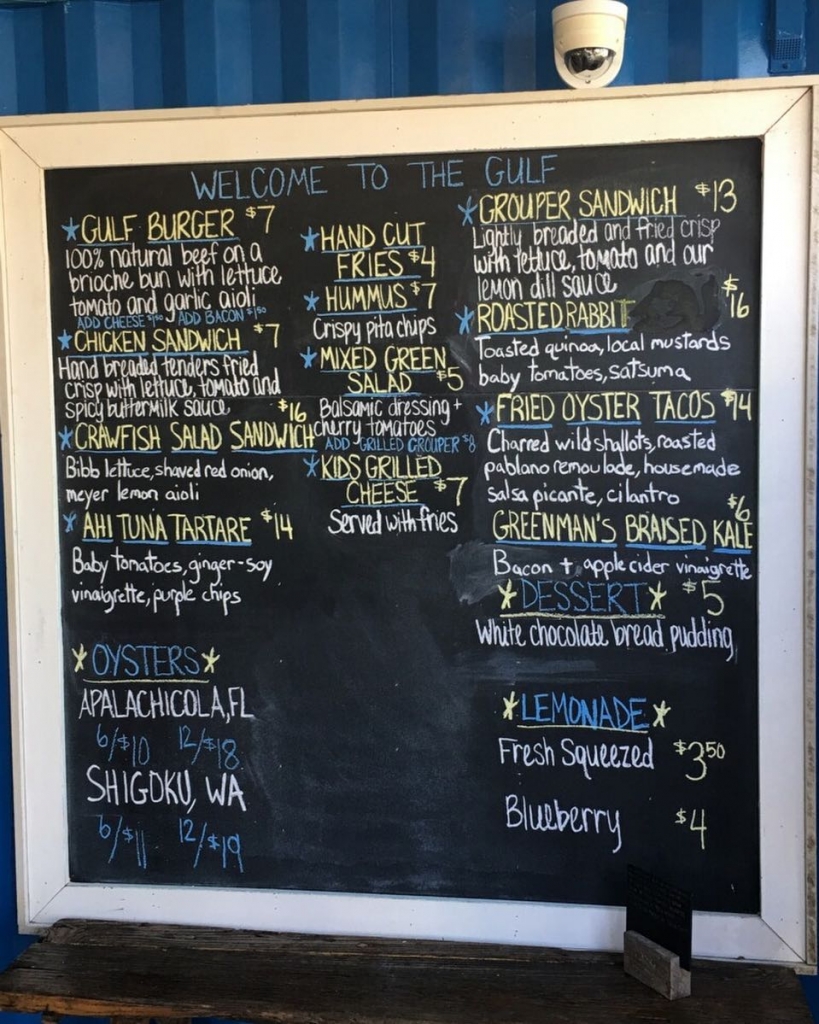 WELCOME TO THE GULF
GULF BURGER $7
100% natural beef on a
brioche bun with lettuce
tomato and garlic aioli
ADD CHEESE $1.50 ADD BACON $1.50
CHICKEN SANDWICH $7
Hand breaded tenders fried
crisp with lettuce, tomato and
spicy buttermilk sauce
$16
CRAWFISH SALAD SANDWICH
Bibb lettuce, shaved red onion,
meyer lemon aioli
AHI TUNA TARTARE $14
Baby tomatoes, ginger-soy
vinaigrette, purple chips
OYSTERS
APALACHICOLA, FL
6/$10 12/$18
SHIGOKU, WA
6/$11 12/$19
HAND CUT
FRIES $4
HUMMUS $7
Crispy pita chips
MIXED GREEN
SALAD $5
Balsamic dressing +
cherry tomatoes
ADD GRILLED GROUPER $8
KIDS GRILLED
CHEESE $7
Served with fries
GROUPER SANDWICH $13
Lightly breaded and fried crisp
with lettuce, tomato and our
lemon dill sauce
ROASTED RABBIT $16
Toasted quinoa, local mustards
baby tomatoes, satsuma
FRIED OYSTER TACOS $14
Charred wild shallots, roasted
pablano remoulade, housemade
salsa picante, cilantro
$6
GREENMAN'S BRAISED KALE
Bacon + apple cider vinaigrette
DESSERT $5
White chocolate bread pudding
LEMONADE
Fresh Squeezed $3.50
Blueberry $4